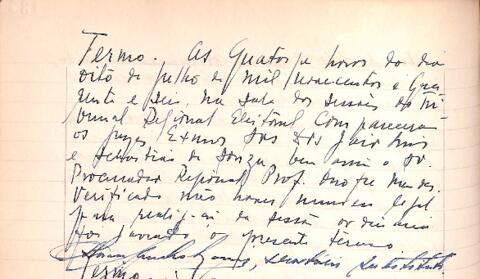 Termo. As quatorze horas do dia
oito de julho de mil novecentos e qua
renta e seis, na sala das sessões do Tri
bunal Regional Eleitoral compareceram
os juizes, Exmos Srs Drs Jairo Lins
e Sebastião de Souza bem assim o Dr.
Procurador Regional Prof. Onofre Mendes.
Verificado não haver numero legal
para realização da sessão ordinaria
foi lavrado o presente termo.
secretário substituto
Termo